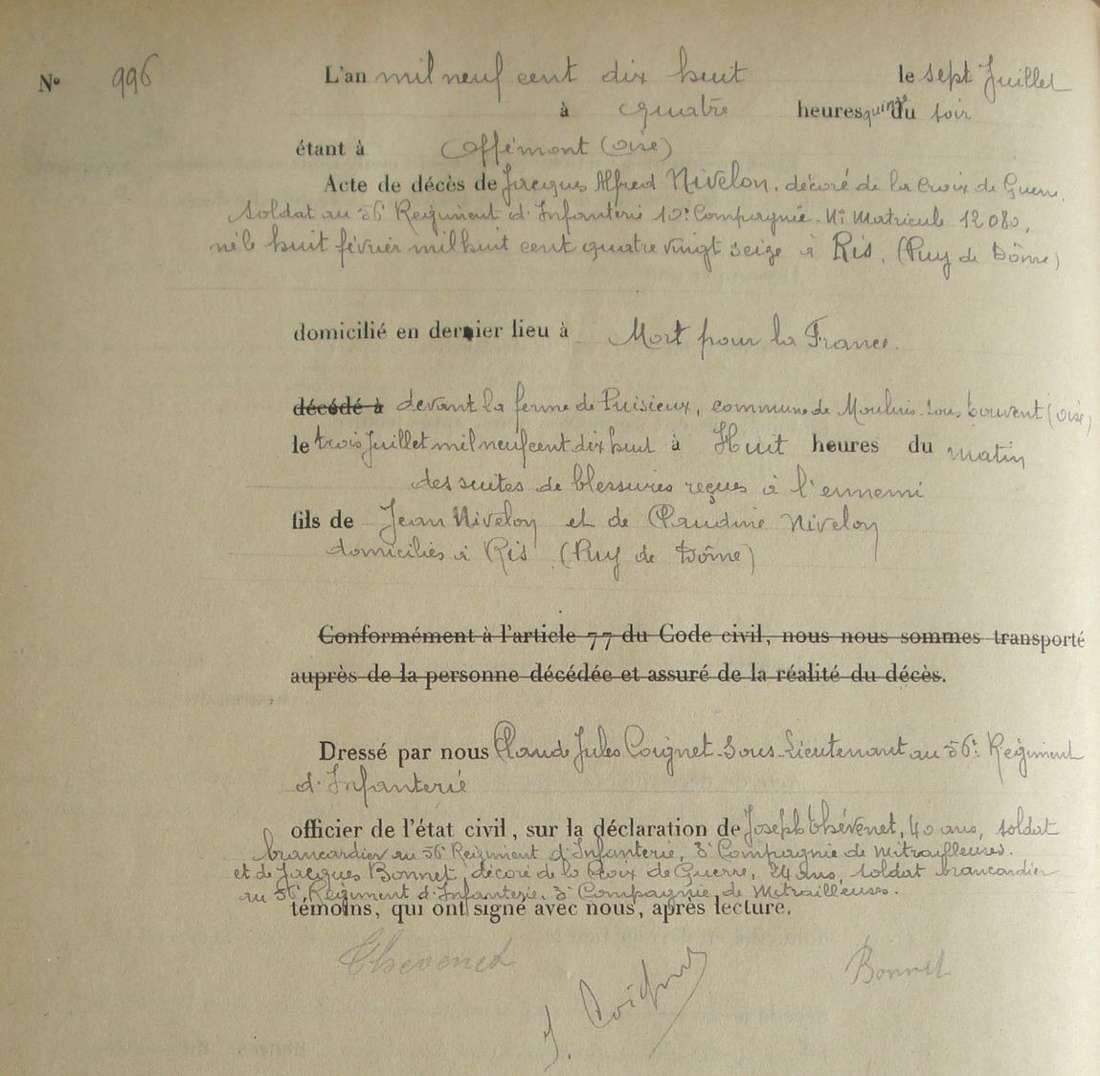 N° 996 L'an mil neuf cent dix huit le sept Juillet
à quatre heures quinze du soir
étant à Offémont (Oise)
Acte de décès de Jacques Alfred Nivelon. décoré de la Croix de Guerre
Soldat au 56e Régiment d'Infanterie 10e Compagnie. N° Matricule 12080,
né le huit février mil huit cent quatre vingt seize à Ris, (Puy de Dôme)
domicilié en dernier lieu à Mort pour la France.
décédé à devant la ferme de Puisieux, commune de Moulins-sous-touvent (Oise)
le trois Juillet mil neuf cent dix huit à Huit heures du matin
des suites de blessures reçues à l'ennemi
fils de Jean Nivelon et de Claudine Nivelon
domiciliés à Ris (Puy de Dôme)
Conformément à l'article 77 du Code civil, nous nous sommes transporté
auprès de la personne décédée et assuré de la réalité du décès.
Dressé par nous Claude Jules Coignet Sous-Lieutenant au 56e Régiment
d'Infanterie
officier de l'état civil, sur la déclaration de Joseph Thévenet, 40 ans, soldat
brancardier au 56e Régiment d'Infanterie, 3e Compagnie de Mitrailleuses.
et de Jacques Bonnet, décoré de la Croix de Guerre, 24 ans, soldat brancardier
au 56e Régiment d'Infanterie, 3e Compagnie de Mitrailleuses.
témoins, qui ont signé avec nous, après lecture.
Thevenet J. Coignet Bonnet